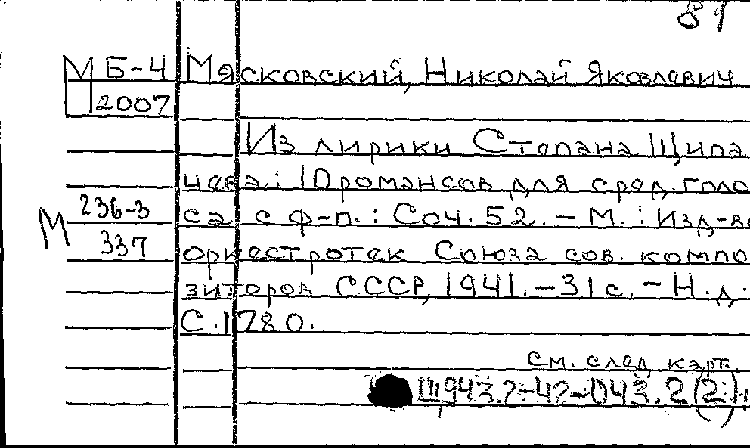 81
М Б-4 Мясковский, Николай Яковлевич
2007
Из лирики Степана Щипа
чева: 10 романсов для сред. голо
236-3 са с ф-п.: Соч. 52. – М.: Изд-во
М 337 оркестротек Союза сов. компо
зиторов СССР, 1941. – 31 с. – Н. д.
С. 1780.
см. след. карт.
Щ943.2-42-043.2(2)